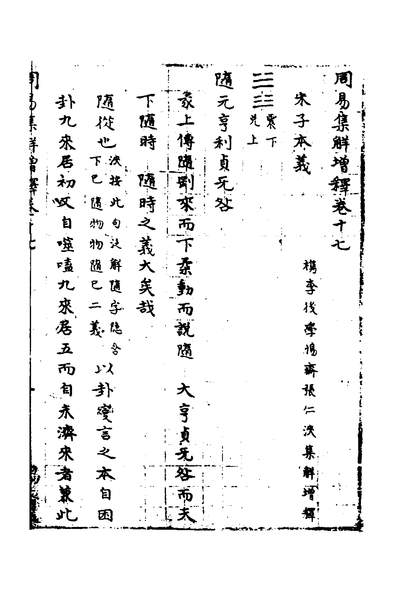 周易集解增釋卷十七
朱子本義
檇李後學惕齋張仁浹集解增釋
震下
兌上
隨元亨利貞旡咎
彖上傳隨剛來而下柔動而說隨 大亨貞旡咎而天
下隨時 隨時之義大矣哉
隨從也浹按此句訣解隨字隐含
下己隨物物隨己二義以卦變言之本自困
卦九來居初又自噬嗑九來居五而自未濟來者兼此
周易集解增釋卷十七